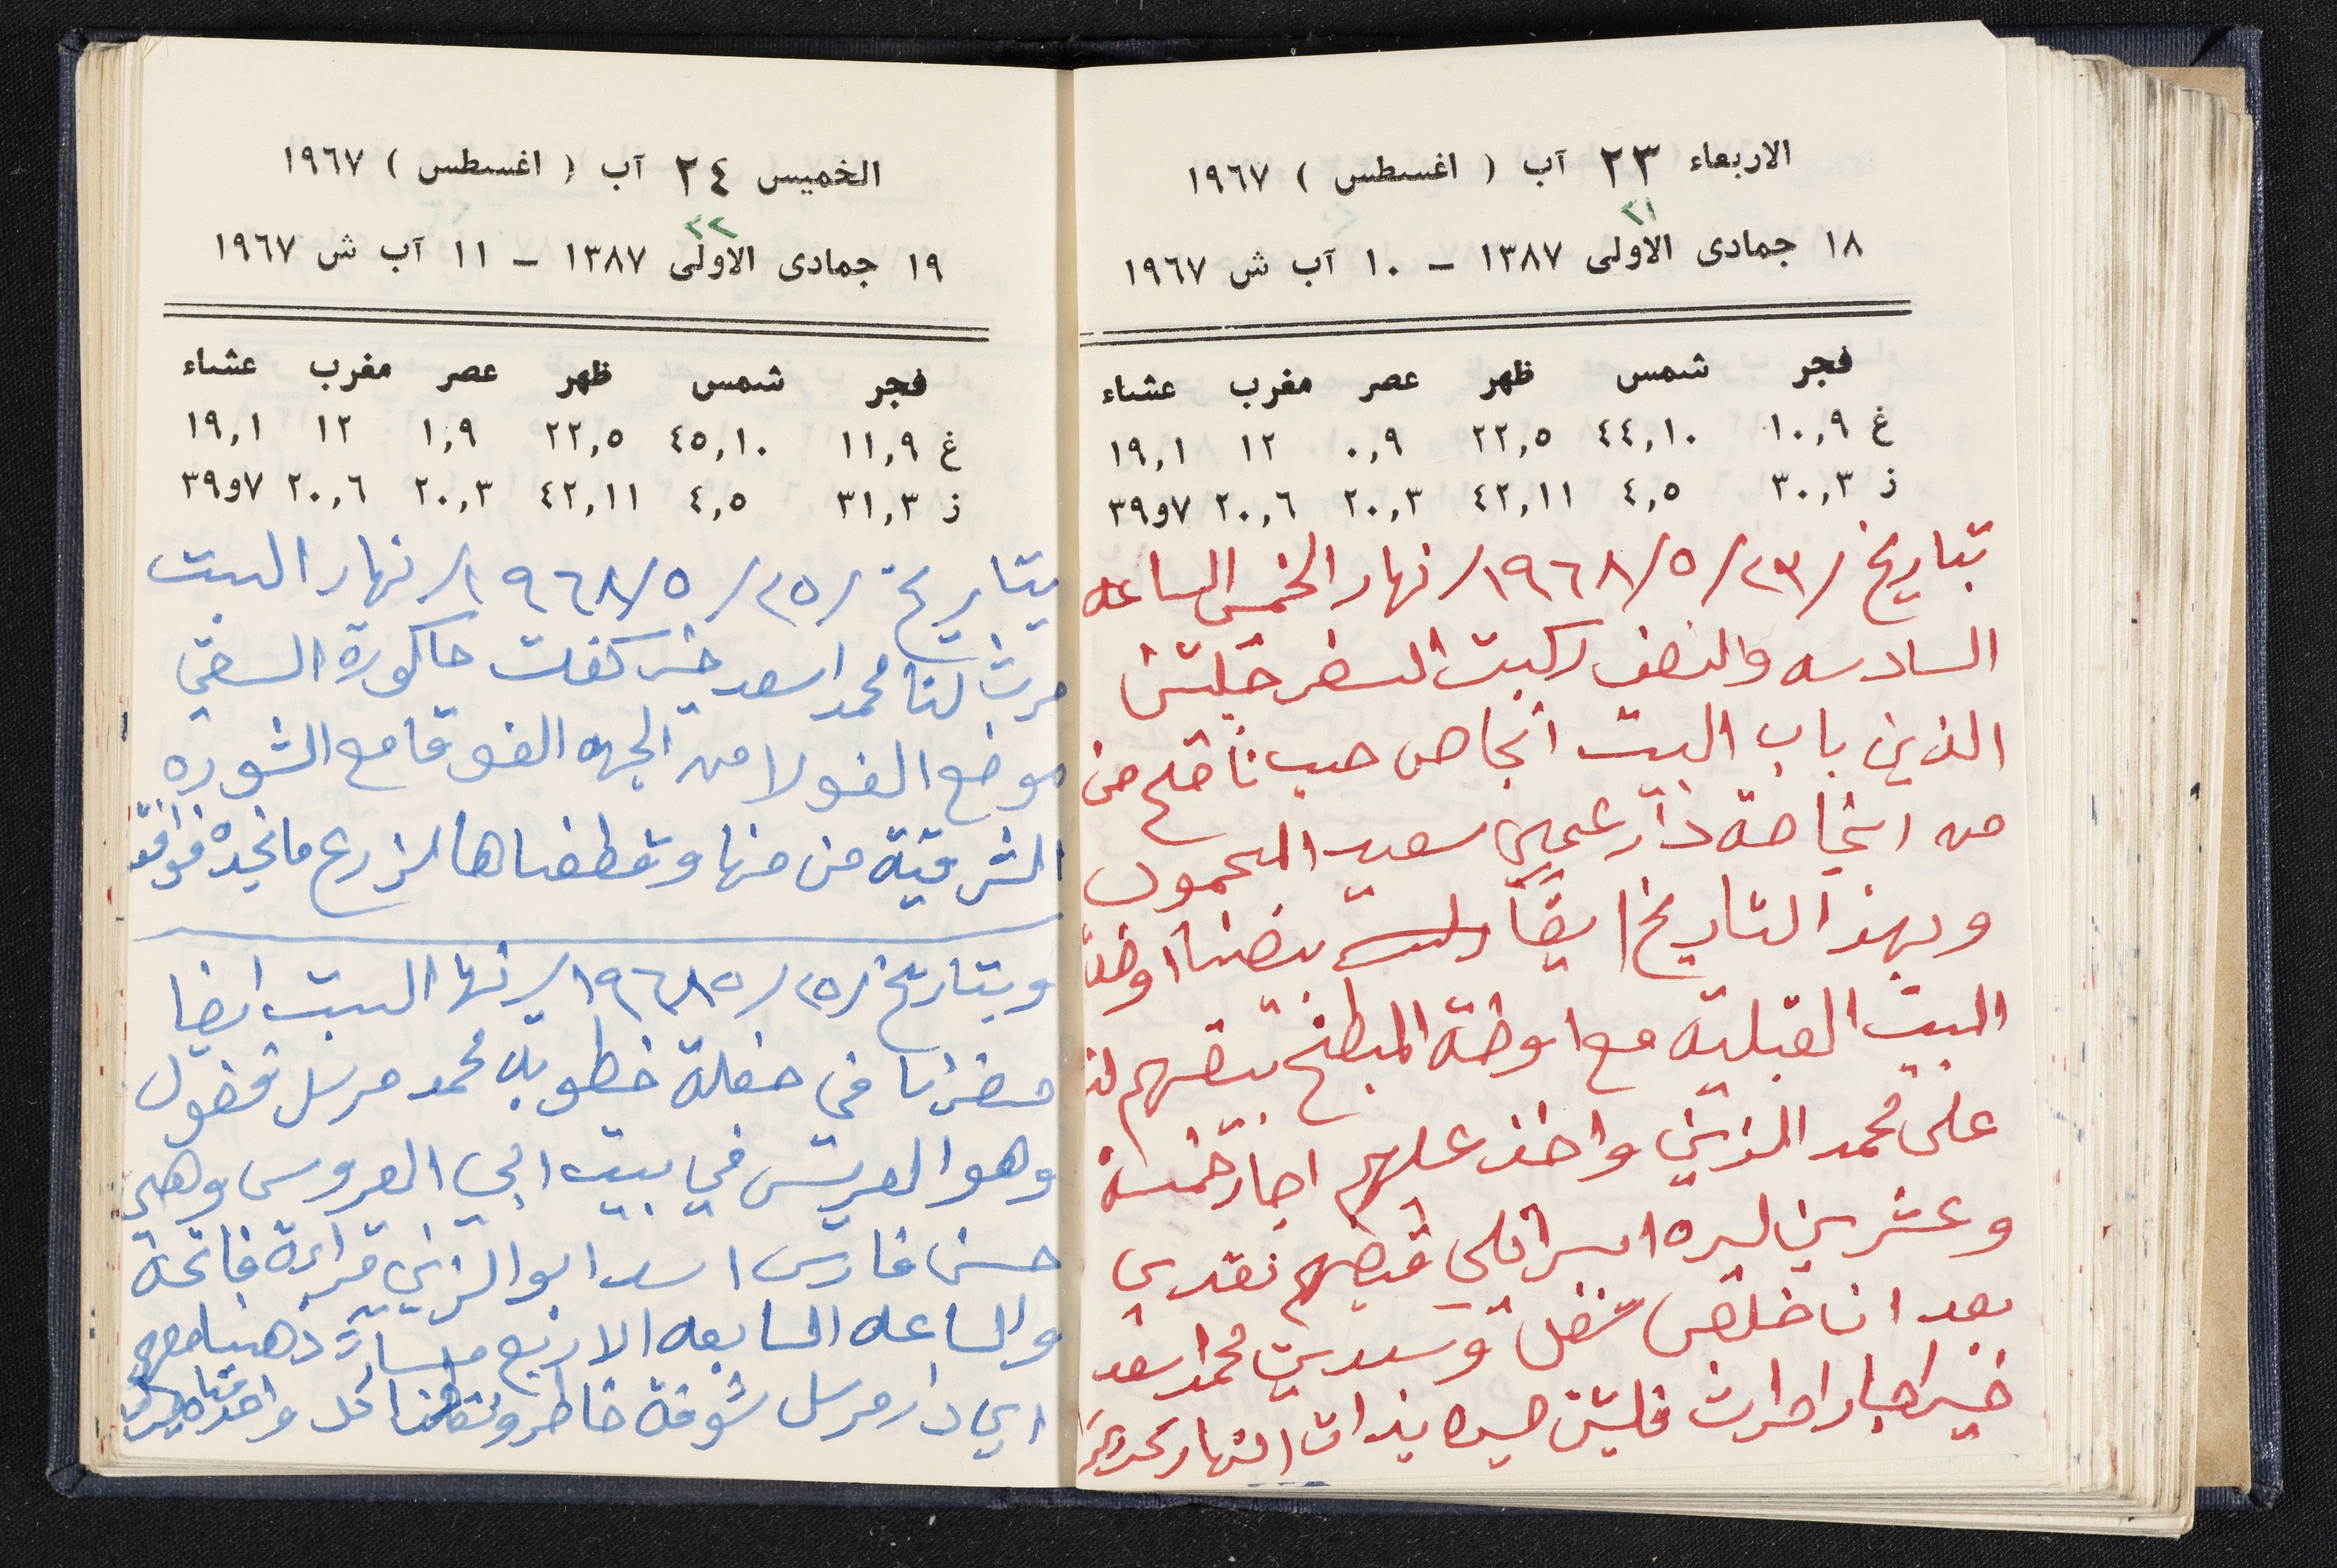 الاربعاء ٢٣ آب ( اغسطس ) ١٩٦٧
٢١
١٨ جمادى الاولى ١٣٨٧ - ١٠ آب ش ١٩٦٧
فجر شمس ظهر عصر مغرب عشاء
غ ١٠,٩ ٤٤,١٠ ٢٢,٥ ٠,٩ ١٢ ١٩,١
ز ٣٠,٣ ٤,٥ ٤٢,١١ ٢٠,٣ ٢٠,٦ ٧و٣٩
بتاريخ /٢٣/٥/١٩٦٨/ نهار الخمس الساعه
السادسه والنصف ركبت السفرجلتين
الذين باب البيت انجاص حب
من انجاصة دار عمي سعيد المحمود
وبهذا التاريخ ايضاً بيضنا اوضة
البيت القبليه مع اوضة المطبخ
على محمد الزين واخذ عليهم اجار خمسة
وعشرين ليره اسرائلي قبضهم نقدي
بعد ان خلص شغل وسيدي محمد اسعد
خير نهار
الخميس ٢٤ آب ( اغسطس ) ١٩٦٧
٢٢
١٩ جمادى الاولى ١٣٨٧ - ١١ آب ش ١٩٦٧
فجر شمس ظهر عصر مغرب عشاء
غ ١١,٩ ٤٥,١٠ ٢٢,٥ ١,٩ ١٢ ١٩,١
ز ٣١,٣ ٤,٥ ٤٢,١١ ٢٠,٣ ٢٠,٦ ٧و٣٩
بتاريخ /٢٥/٥/١٩٦٨/ نهار السبت
حرث لنا محمد اسعد خير حاكورة السقي
موضع الفولا من الجهه الفوقا مع الشوره
الشرقية من منها وقطفناها لزرع
وبتاريخ /٢٥/٥/١٩٦٨/ نها السبت ايضا
حضرنا في حفلة خطوبة محمد مرسل فضول
وهو العريس في بيت ابي العروس وهي
حسن فارس اسد ابو الزين قراءة فاتحة
والساعه السابعه الا ربع مساءً ذهبنا معهم
الى دار مرسل شوفة خاطر كل واحد